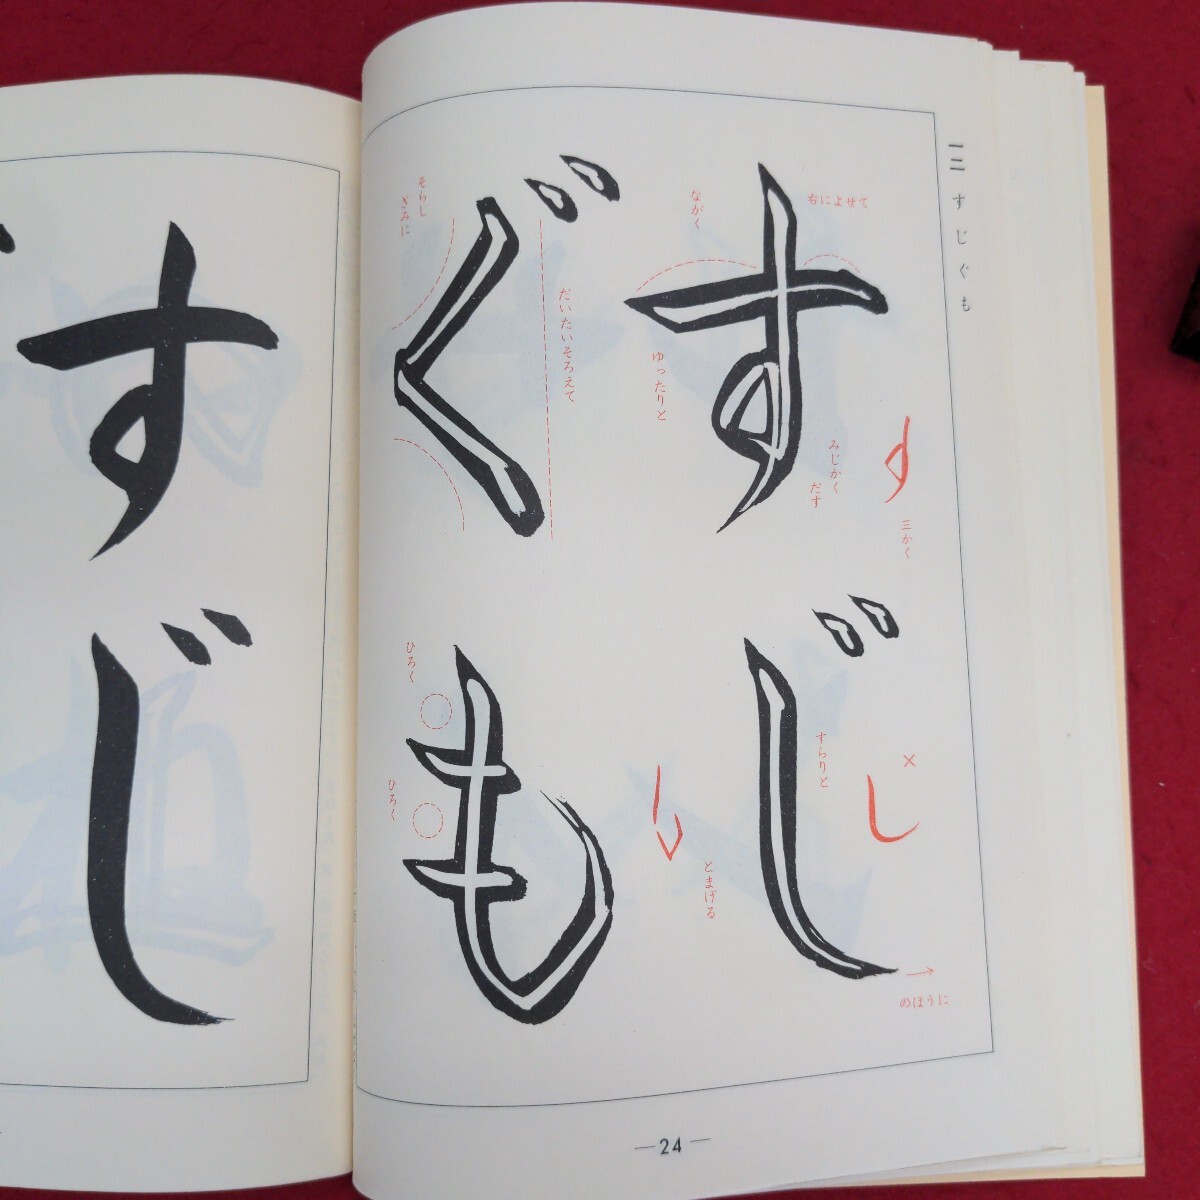 一二 すじぐも
す
右によせて
ながく
ゆったりと
みじかく
だす
三かく
じ
すらりと
×
のほうに
ぐ
そらし
ぎみに
だいたいそろえて
も
ひろく
ひろく
とまげる
す
じ
—24—